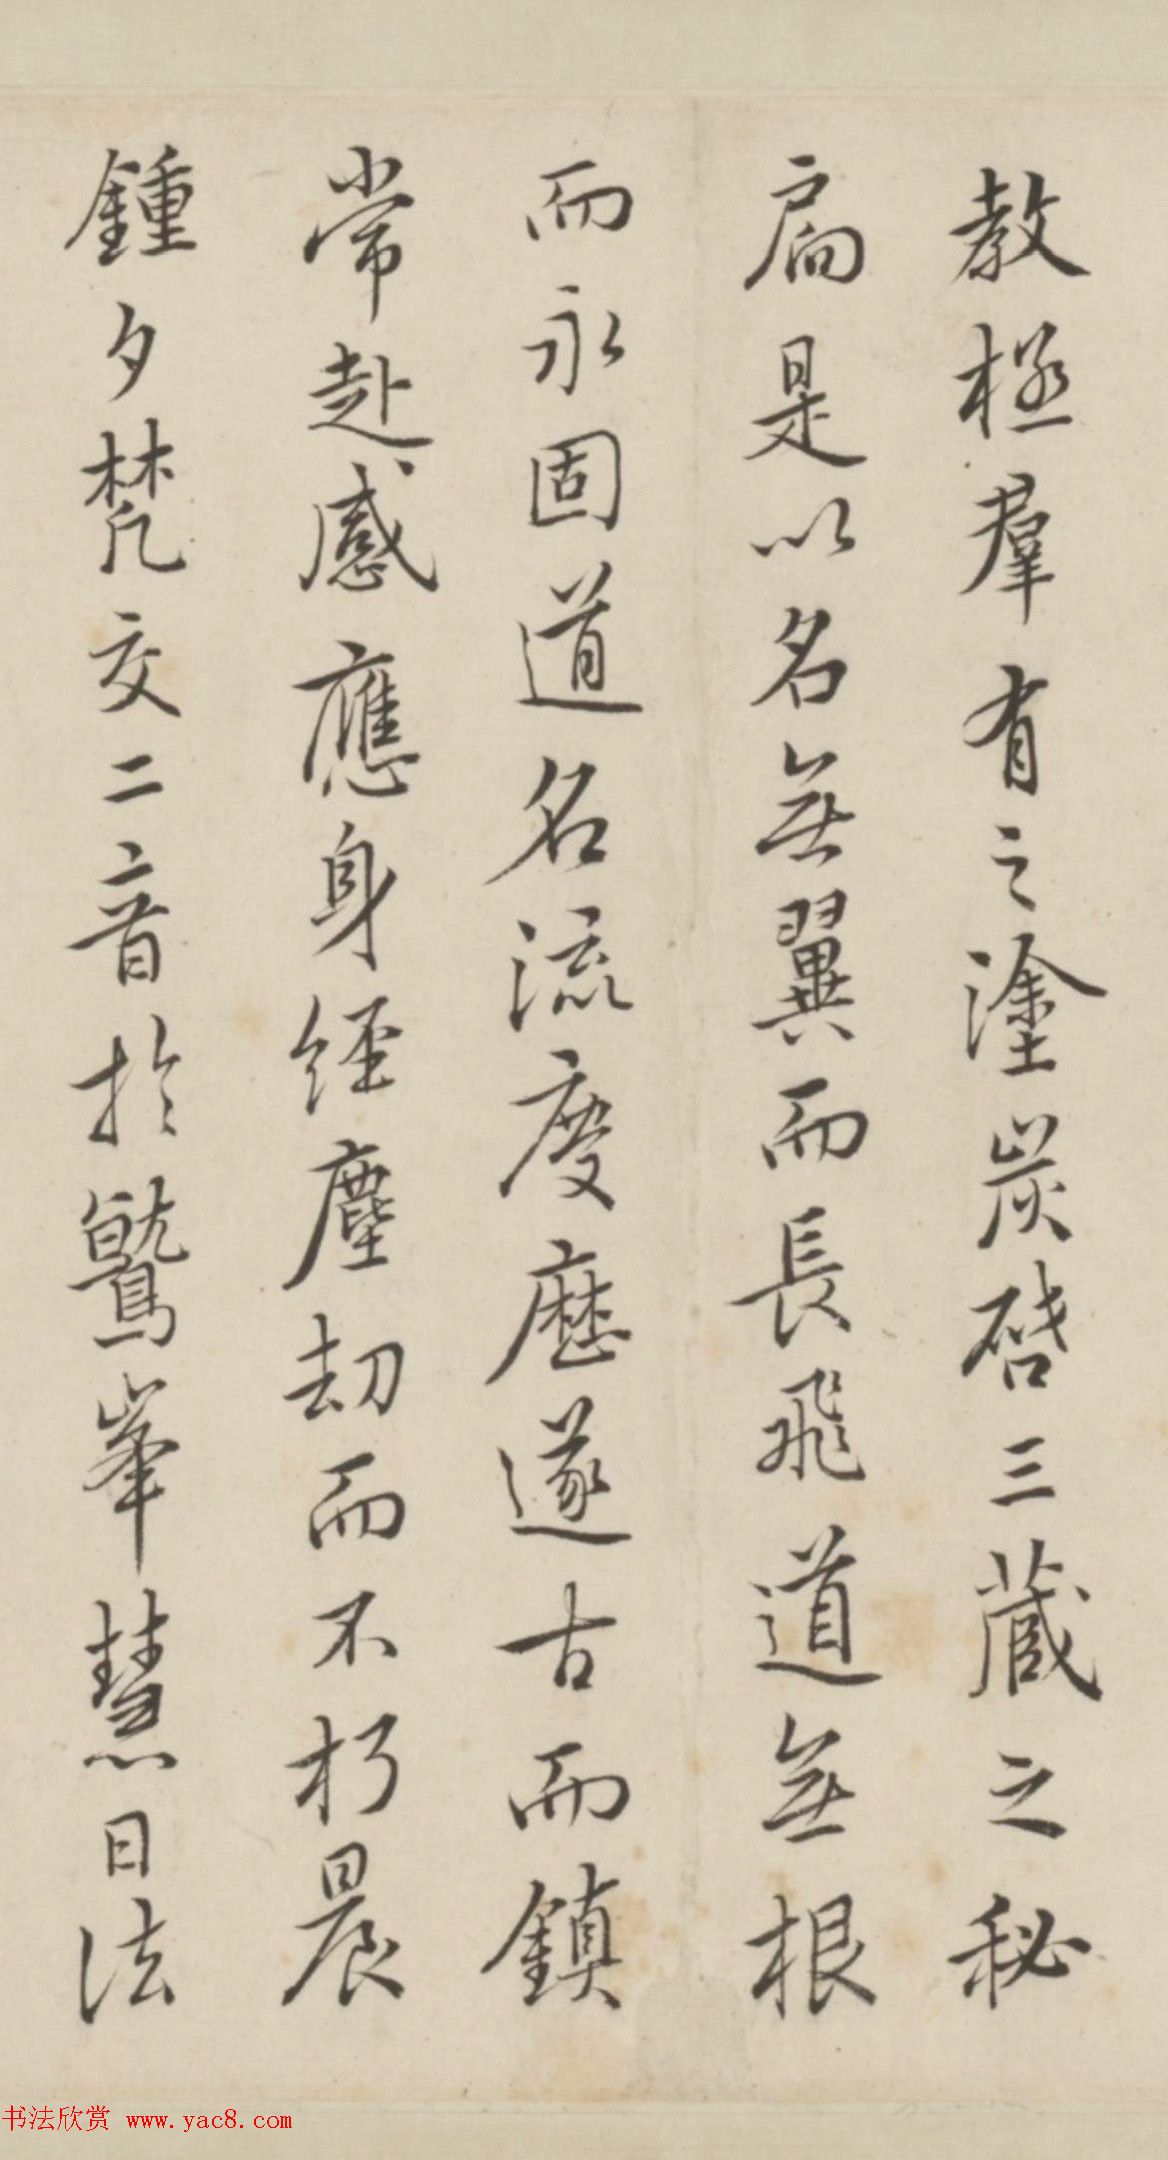 教極羣有之塗炭啓三藏之秘
扃是以名無翼而長飛道無根
而永固道名流慶歷遂古而鎮
常赴感應身經塵劫而不朽晨
鍾夕梵交二音於鷲峯慧日法
书法欣赏 www.yac8.com